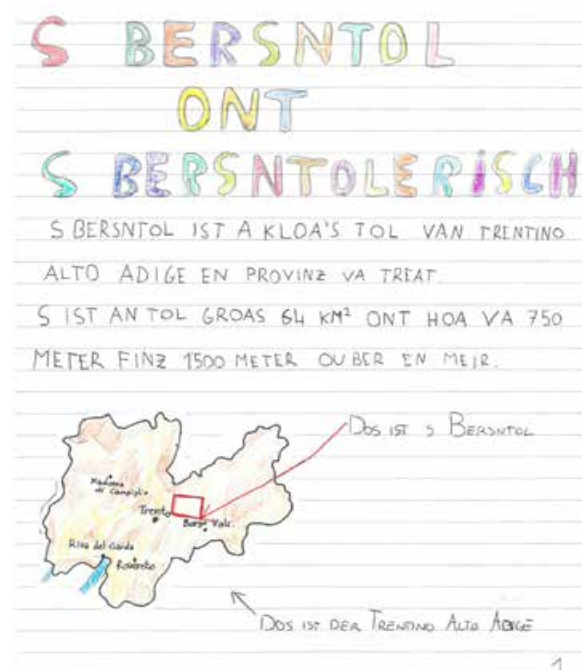 S BERSNTOL
ONT
S BERSNTOLERISCH
S BERSNTOL IST A KLOA'S TOL VAN TRENTINO
ALTO ADIGE EN PROVINZ VA TREAT.
S IST AN TOL GROAS 64 KM² ONT HOA VA 750
METER FINZ 1500 METER OUBER EN MEIR.
DOS IST S BERSNTOL
Madonna
di Campiglio
Trento
Borgo Vals.
Riva del Garda
Rovereto
DOS IST DER TRENTINO ALTO ADIGE
1